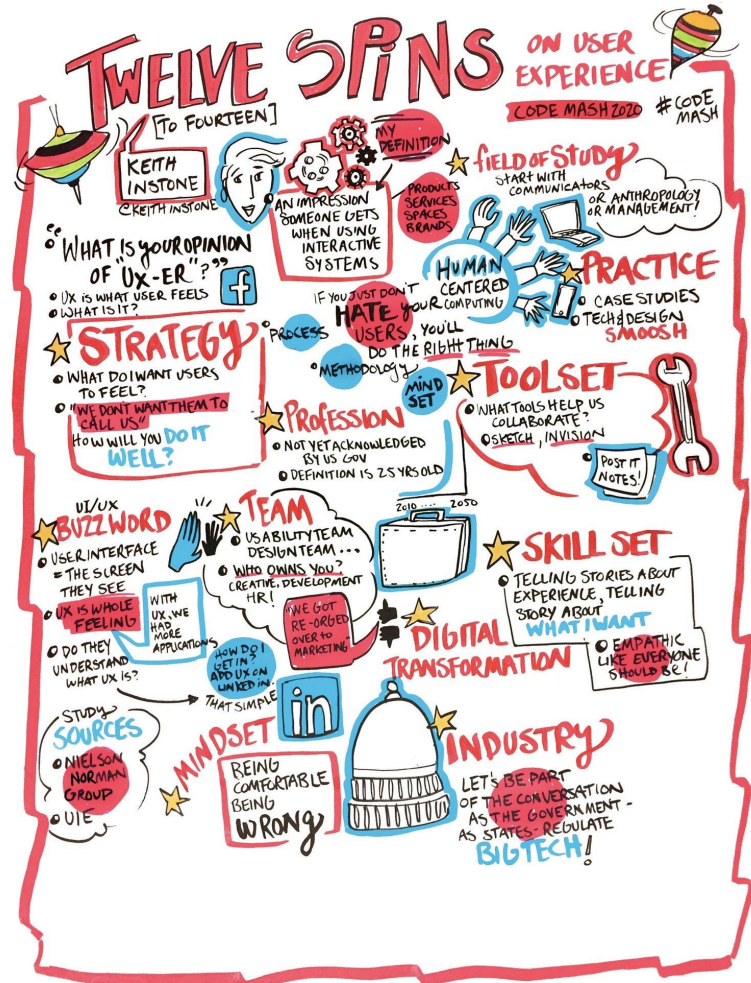 TWELVE SPINS
ON USER
EXPERIENCE
[TO FOURTEEN]
CODE MASH 2020
#CODE
MASH
KEITH
INSTONE
@KEITHINSTONE
MY
DEFINITION
AN IMPRESSION
SOMEONE GETS
WHEN USING
INTERACTIVE
SYSTEMS
PRODUCTS
SERVICES
SPACES
BRANDS
FIELD OF STUDY
START WITH
COMMUNICATORS
OR ANTHROPOLOGY
OR MANAGEMENT!
"WHAT IS YOUR OPINION
OF "UX-ER"?"
UX IS WHAT USER FEELS
WHAT IS IT?
f
HUMAN
CENTERED
COMPUTING
PRACTICE
CASE STUDIES
TECH & DESIGN
SMOOSH
IF YOU JUST DON'T
HATE YOUR
USERS, YOU'LL
DO THE RIGHT THING
PROCESS
METHODOLOGY
MIND
SET
STRATEGY
WHAT DO I WANT USERS
TO FEEL?
"WE DON'T WANT THEM TO
CALL US"
HOW WILL YOU DO IT
WELL?
TOOLSET
WHAT TOOLS HELP US
COLLABORATE?
SKETCH, INVISION
POST IT
NOTES!
PROFESSION
NOT YET ACKNOWLEDGED
BY US GOV
DEFINITION IS 25 YRS OLD
2010 .... 2050
UI/UX
BUZZWORD
USER INTERFACE
= THE SCREEN
THEY SEE
UX IS WHOLE
FEELING
DO THEY
UNDERSTAND
WHAT UX IS?
WITH
UX, WE
HAD
MORE
APPLICATIONS
TEAM
USABILITY TEAM
DESIGN TEAM ...
WHO OWNS YOU?
CREATIVE, DEVELOPMENT
HR!
"WE GOT
RE-ORGED
OVER TO
MARKETING"
HOW DO I
GET IN?
ADD UX ON
LINKED IN.
THAT SIMPLE
in
SKILL SET
TELLING STORIES ABOUT
EXPERIENCE, TELLING
STORY ABOUT
WHAT I WANT
EMPATHIC
LIKE EVERYONE
SHOULD BE!
DIGITAL
TRANSFORMATION
STUDY
SOURCES
NIELSON
NORMAN
GROUP
UIE
MINDSET
BEING
COMFORTABLE
BEING
WRONG
INDUSTRY
LET'S BE PART
OF THE CONVERSATION
AS THE GOVERNMENT -
AS STATES - REGULATE
BIG TECH!